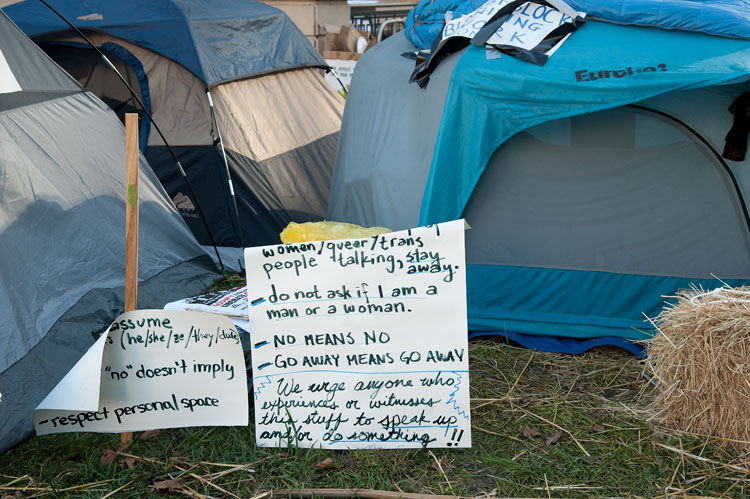 BLOCK
Eureka!
women/queer/trans
people talking, stay
away.
- do not ask if I am a
man or a woman.
- NO MEANS NO
- GO AWAY MEANS GO AWAY
We urge anyone who
experiences or witnesses
this stuff to speak up
and/or do something!!!
assume
(he/she/ze/they/dude)
"no" doesn't imply
- respect personal space